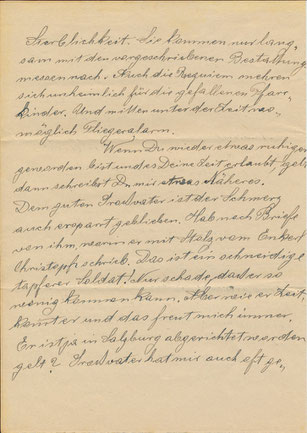 Sterblichkeit. Sie kommen nur lang-
sam mit den vorgeschriebenen Bestattung
messen nach. Auch die Requiem mehren
sich unheimlich für die gefallenen Pfarr-
kinder. Und mitten unter der Zeit wo-
möglich Fliegeralarm.
Wenn Du wieder etwas ruhiger
geworden bist und es Deine Zeit erlaubt, gelt
dann schreibst Du mir etwas Näheres.
Dem guten Großvater ist der Schmerz
auch erspart geblieben. Hab noch Briefe
von ihm, worin er mit Stolz vom Enkerl
Christoph schrieb. Das ist ein schneidiger
tapferer Soldat! Nur schade, daß er so
wenig kommen kann. Aber wie er Zeit
kommt er und das freut mich immer.
Er ist ja in Salzburg abgerichtet worden
gelt? Großvater hat mir auch oft ge-